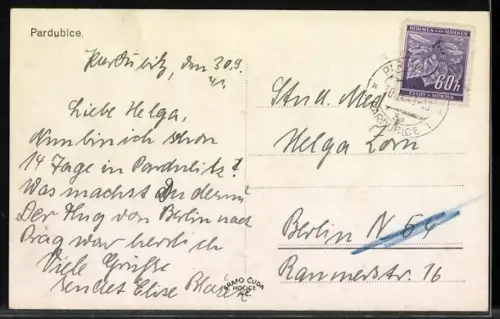 Pardubice.
Pardubitz, den 30.9.
41.
Liebe Helga,
Nun bin ich schon
14 Tage in Pardubitz!
Was machst Du denn?
Der Flug von Berlin nach
Prag war herrlich
Viele Grüße
sendet Elise
BÖHMEN UND MÄHREN
60h
ČECHY A MORAVA
PARDUBICE 1
Stud. Med.
Helga Zorn
Berlin N
Ranmerstr. 16
GRAFO ČUDA
HOLICE